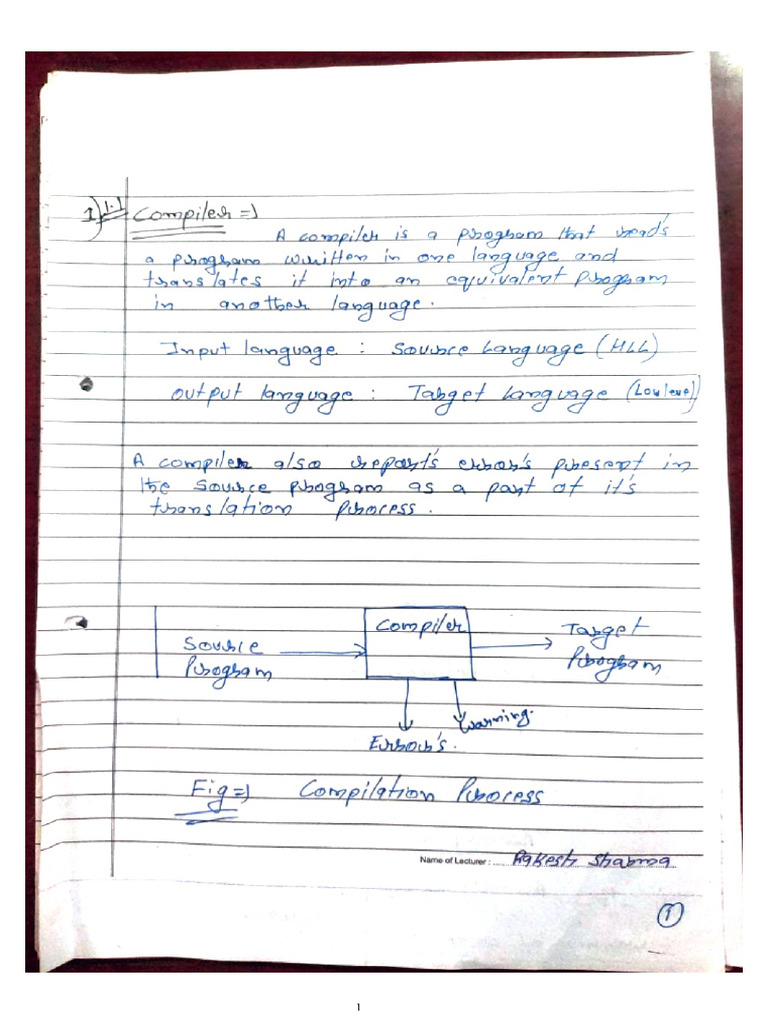 1) 1.1 Compiler =>
A compiler is a program that read's
a program written in one language and
translates it into an equivalent program
in another language.
Input language : Source Language (HLL)
Output language : Target Language (Low level)
A compiler also report's error's present in
the source program as a part of it's
translation process.
Compiler
Source Program
Target Program
Error's.
Warning.
Fig => Compilation Process
Name of Lecturer : ..... Rakesh Sharma
1
1